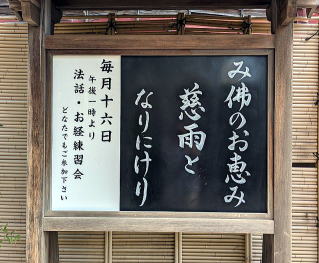 み佛のお恵み
慈雨と
なりにけり
毎月十六日
午後一時より
法話・お経練習会
どなたでもご参加下さい